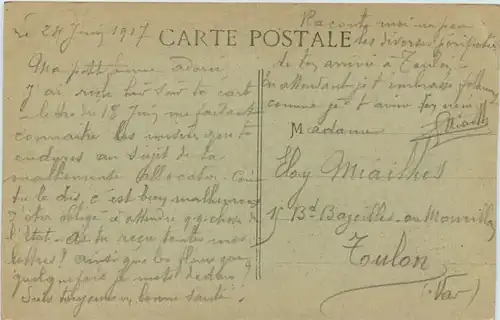 Le 24 Juin 1917
CARTE POSTALE
Ma petite femme adorée
J'ai reçu hier soir ta cart
lettre du 18 Juin me faisant
connaître les misères que t'
endures au sujet de ta
malheureuse Allocation. Comme
tu le dis, c'est bien malheureux
d'être obligé d'attendre q.q. chose de
l'Etat. As tu reçu toutes mes
lettres? ainsi que les fleurs que
quelquefois je mets dedans?
Suis toujours en bonne santé.
Raconte moi un peu
les diverses péripéties
de ton arrivée à Toulon.
En attendant je t'embrasse follement
comme je t'aime ton
Madame
Eloy Miailhes
Bd Bazeilles ou
Toulon
(Var)